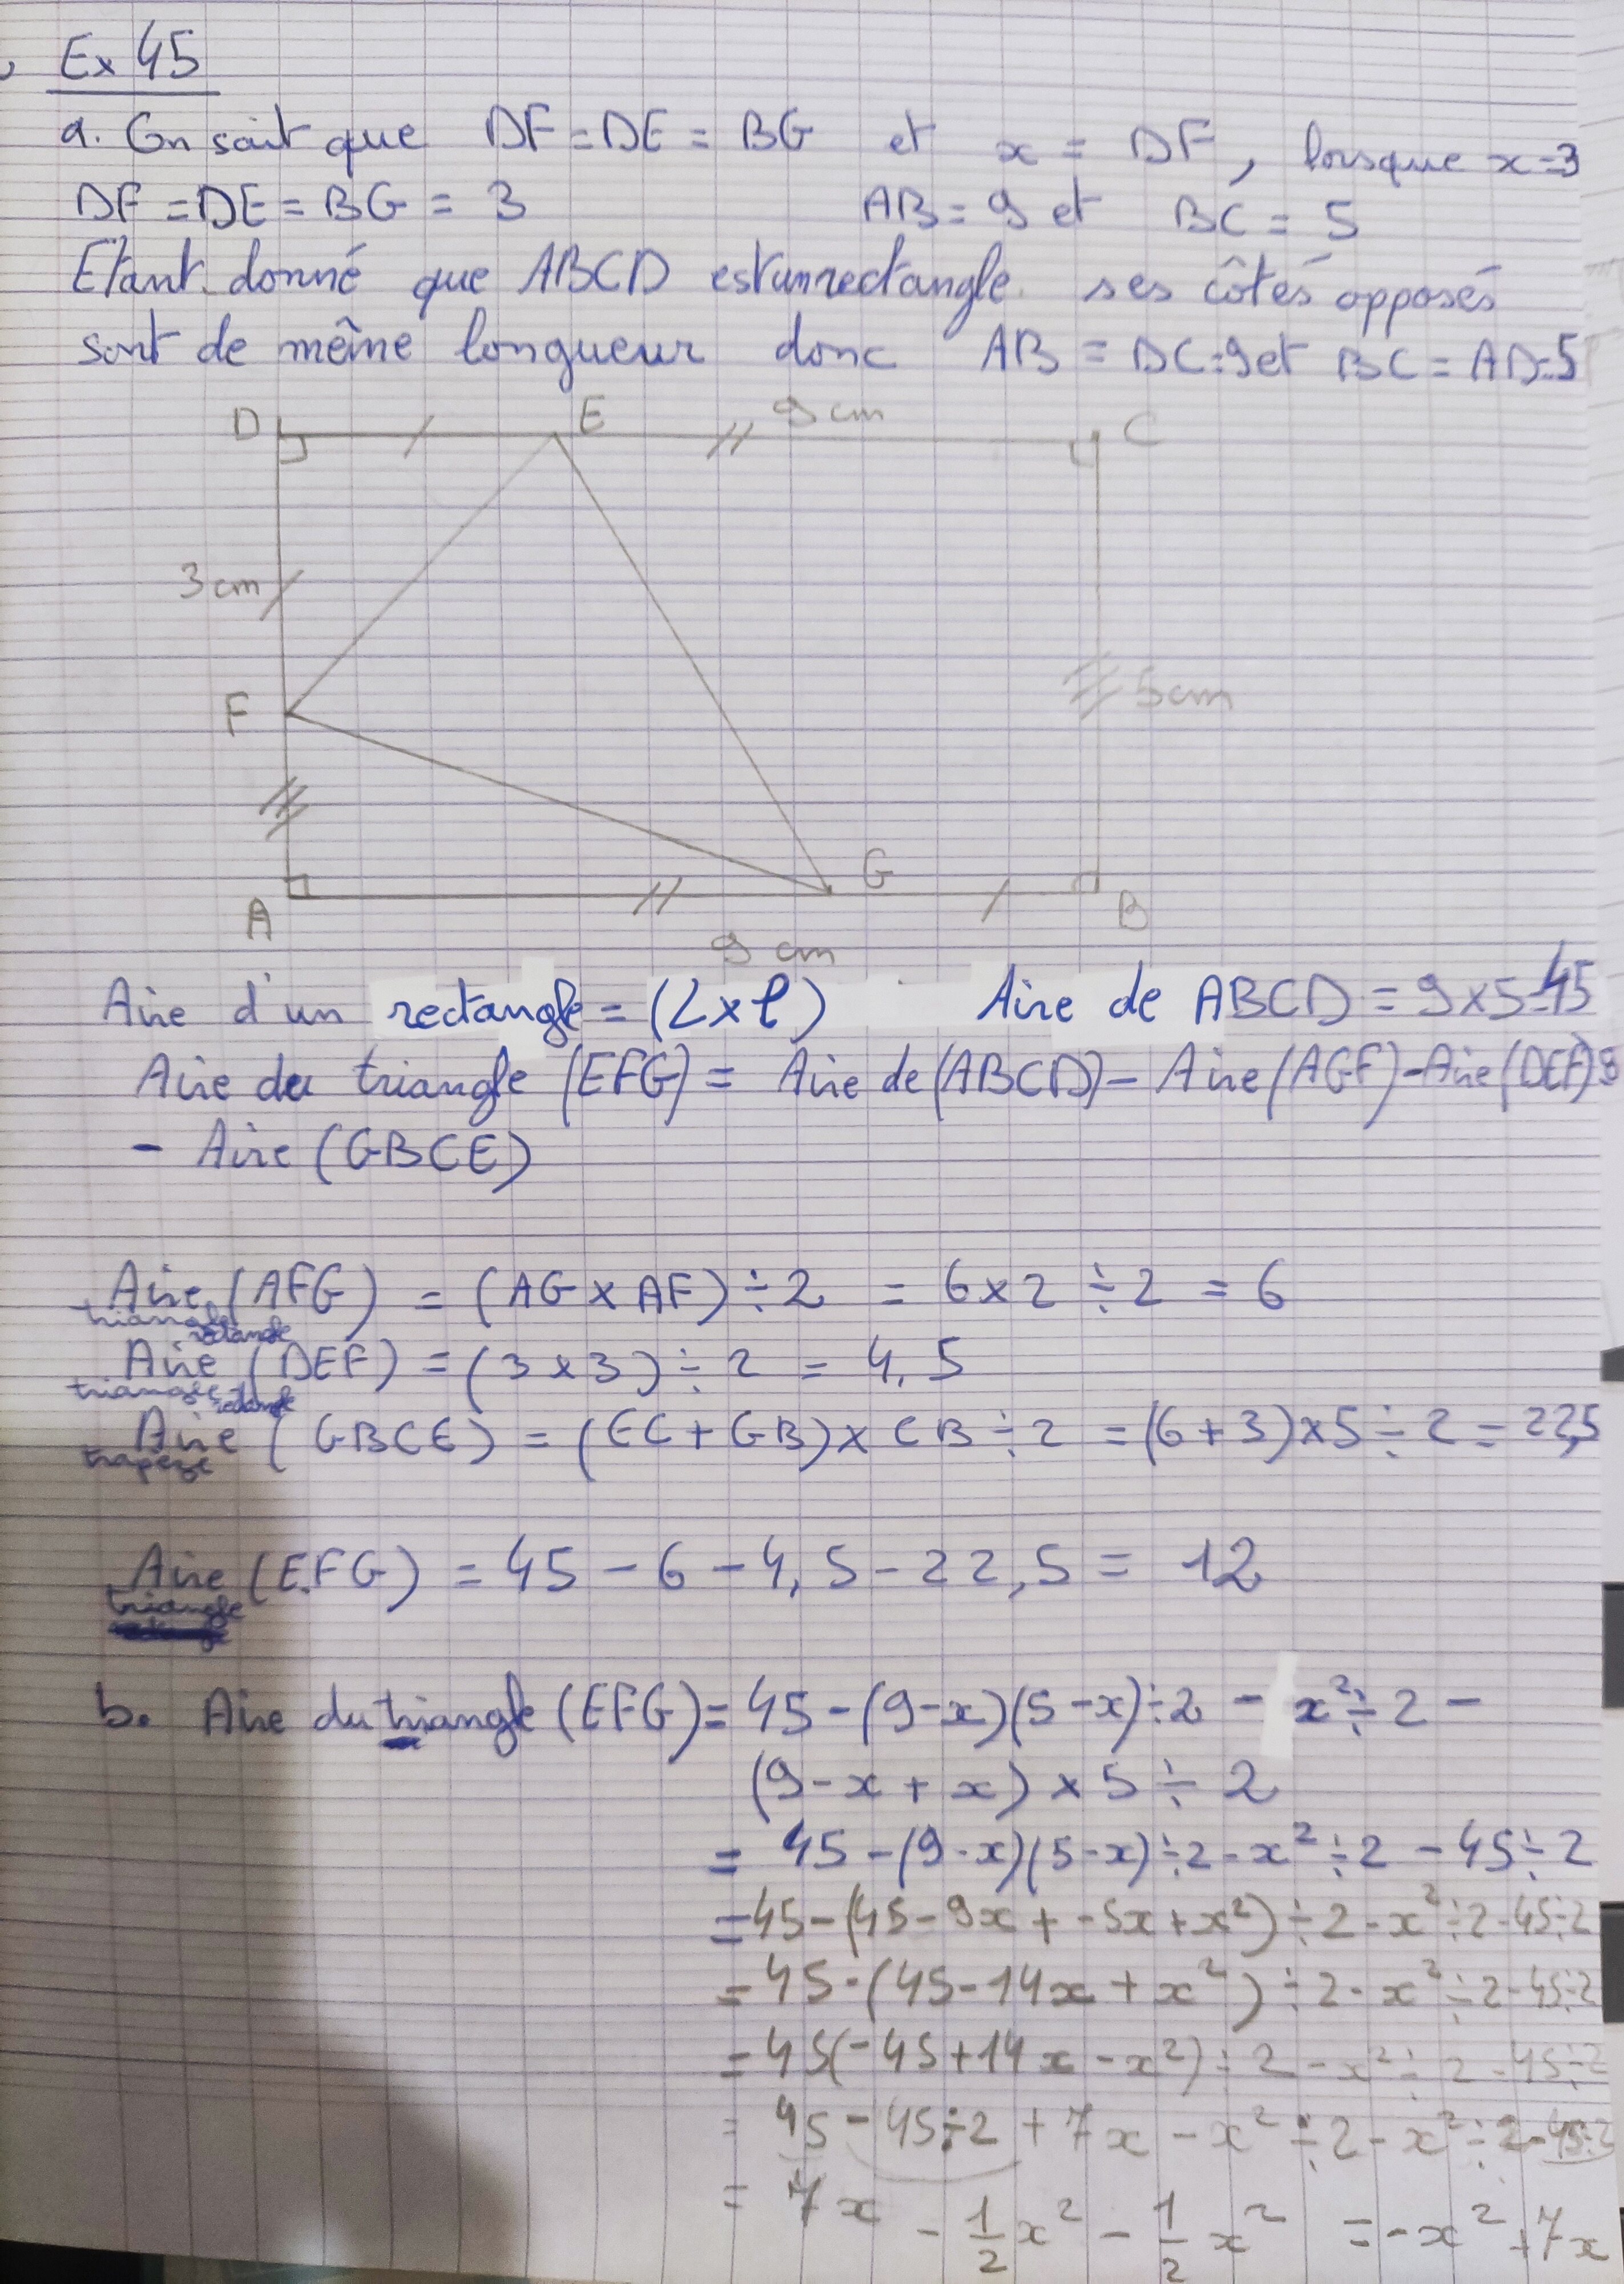 Ex 45
a. On sait que DF = DE = BG et x = DF, lorsque x=3
DF = DE = BG = 3 AB = 9 et BC = 5
Etant donné que ABCD est un rectangle ses côtés opposés
sont de même longueur donc AB = DC=9 et BC = AD=5
D E 9 cm C
3 cm
F 5 cm
G
A B
9 cm
Aire d'un rectangle = (L×l) Aire de ABCD = 9×5=45
Aire du triangle (EFG) = Aire de (ABCD) - Aire (AGF) - Aire (DEF)
- Aire (GBCE)
Aire (AFG) = (AG × AF) ÷ 2 = 6×2 ÷ 2 = 6
triangle rectangle
Aire (DEF) = (3×3) ÷ 2 = 4,5
triangle rectangle
Aire (GBCE) = (EC + GB) × CB ÷ 2 = (6+3)×5÷2 = 22,5
trapèze
Aire (EFG) = 45 - 6 - 4,5 - 22,5 = 12
triangle
b. Aire du triangle (EFG) = 45 - (9-x)(5-x)÷2 - x²÷2 -
(9-x+x) × 5 ÷ 2
= 45 - (9-x)(5-x)÷2 - x²÷2 - 45÷2
= 45 - (45 - 9x + -5x + x²) ÷ 2 - x² ÷ 2 - 45÷2
= 45 - (45 - 14x + x²) ÷ 2 - x² ÷ 2 - 45÷2
= 45(-45 + 14x - x²) ÷ 2 - x² ÷ 2 - 45÷2
= 45 - 45÷2 + 7x - x² ÷ 2 - x² ÷ 2 - 45÷2
= 7x - 1/2 x² - 1/2 x² = -x² + 7x